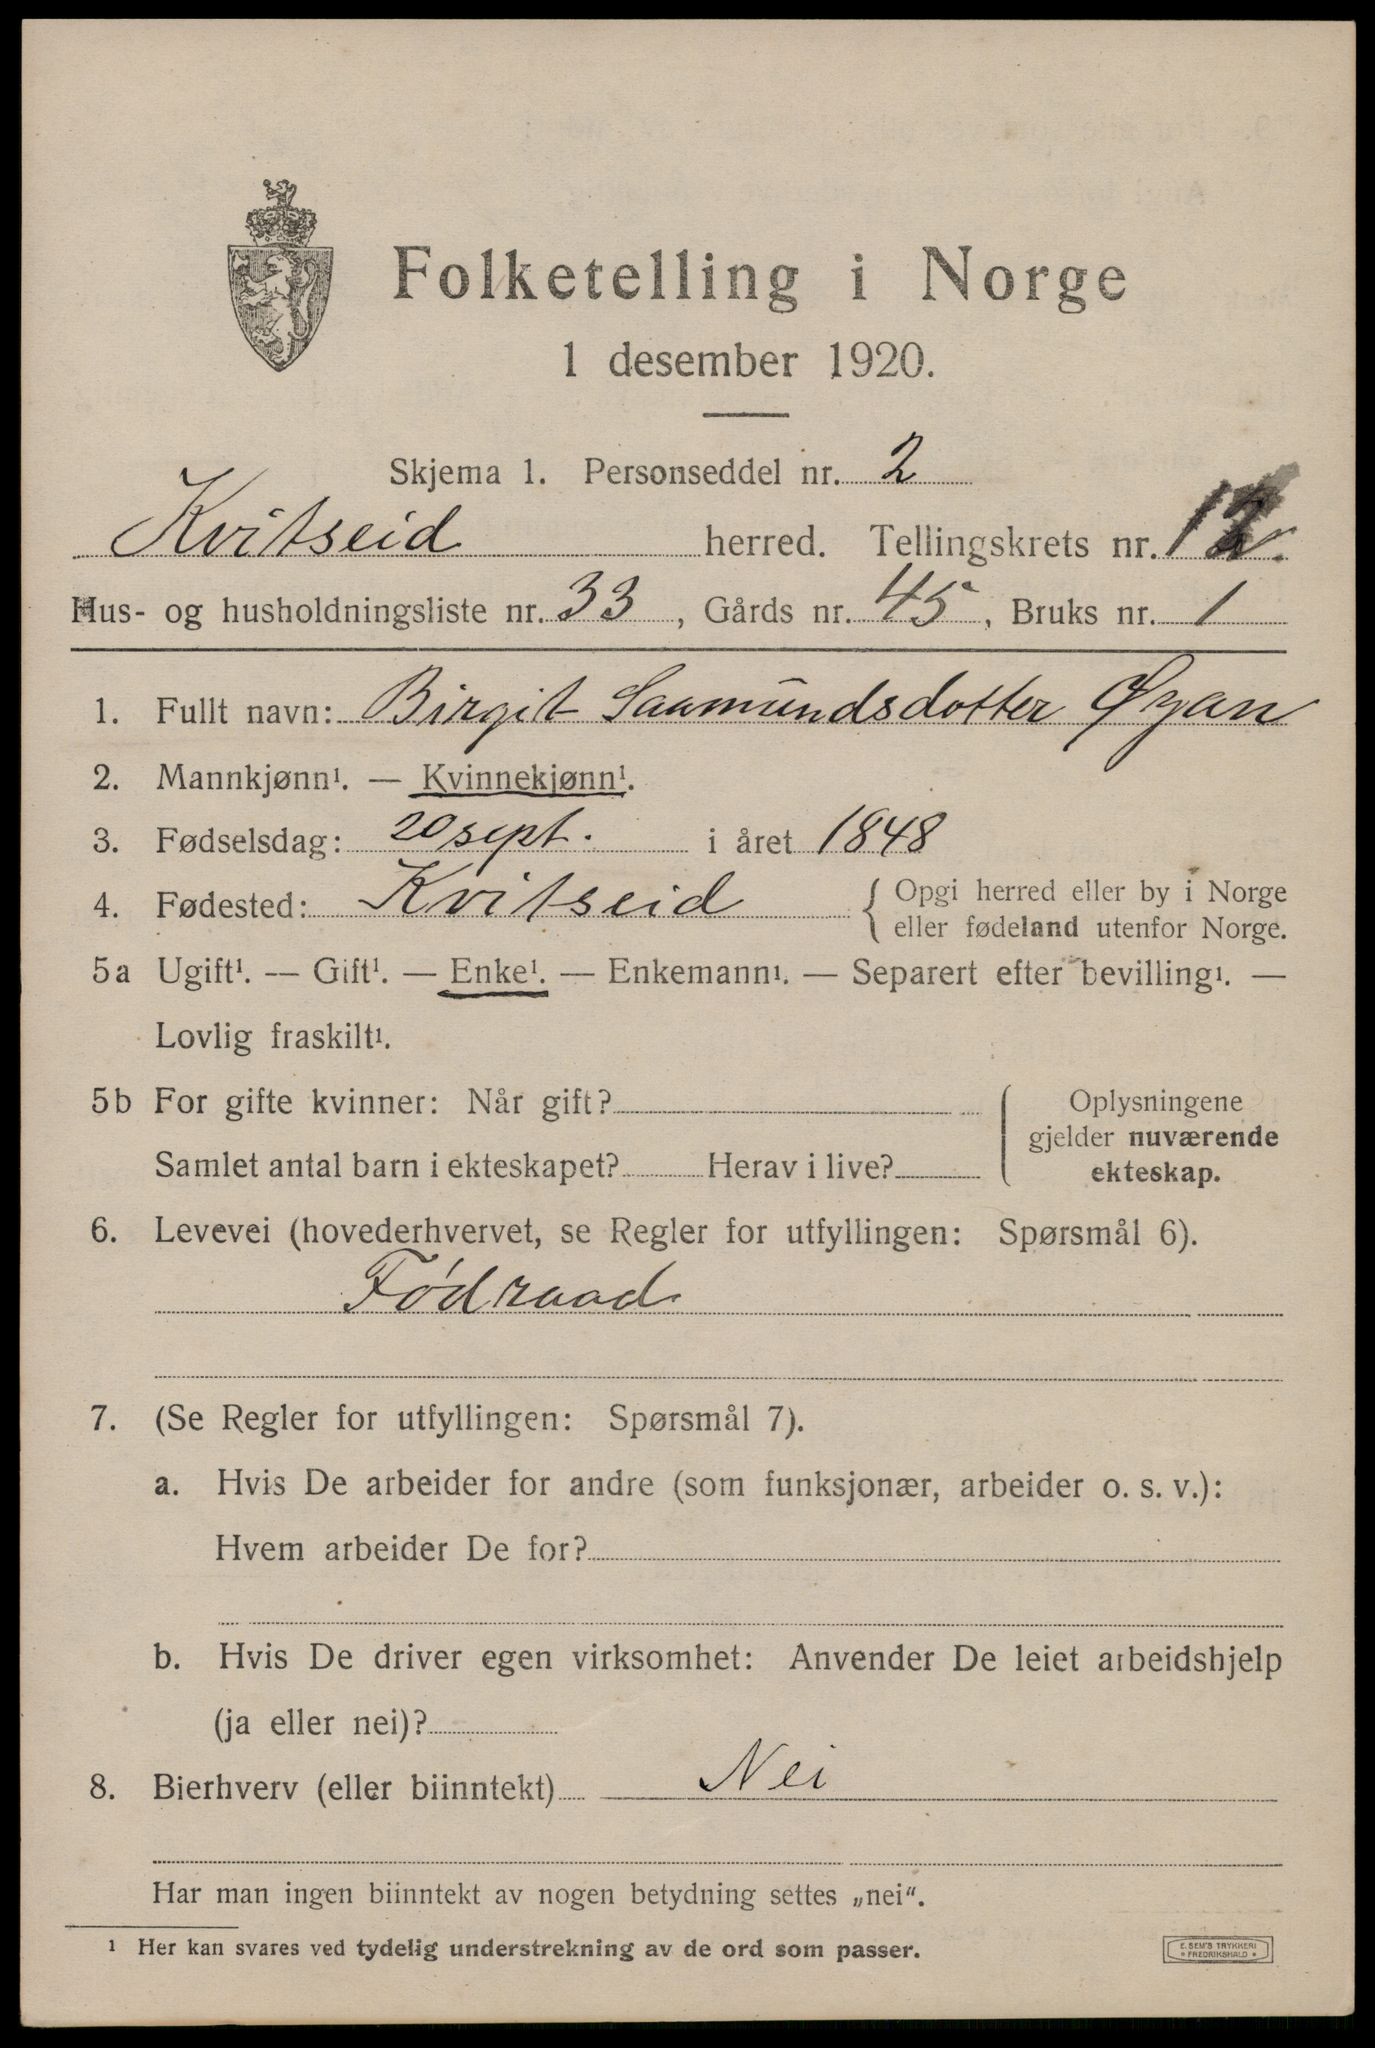 Folketelling i Norge
1 desember 1920.
Skjema 1. Personseddel nr. 2
Kvitseid herred. Tellingskrets nr. 12
Hus- og husholdningsliste nr. 33, Gårds nr. 45, Bruks nr. 1
1. Fullt navn: Birgit Saamundsdotter Øyan
2. Mannkjønn¹. — Kvinnekjønn¹.
3. Fødselsdag: 20 sept. i året 1848
4. Fødested: Kvitseid { Opgi herred eller by i Norge
eller fødeland utenfor Norge.
5a Ugift¹. — Gift¹. — Enke¹. — Enkemann¹. — Separert efter bevilling¹. —
Lovlig fraskilt¹.
5b For gifte kvinner: Når gift?
Samlet antal barn i ekteskapet? Herav i live?
Oplysningene
gjelder nuværende
ekteskap.
6. Levevei (hovederhvervet, se Regler for utfyllingen: Spørsmål 6).
Fødraad
7. (Se Regler for utfyllingen: Spørsmål 7).
a. Hvis De arbeider for andre (som funksjonær, arbeider o. s. v.):
Hvem arbeider De for?
b. Hvis De driver egen virksomhet: Anvender De leiet arbeidshjelp
(ja eller nei)?
8. Bierhverv (eller biinntekt) Nei
Har man ingen biinntekt av nogen betydning settes „nei“.
¹ Her kan svares ved tydelig understrekning av de ord som passer.
E. SEM'S TRYKKERI
* FREDRIKSHALD *